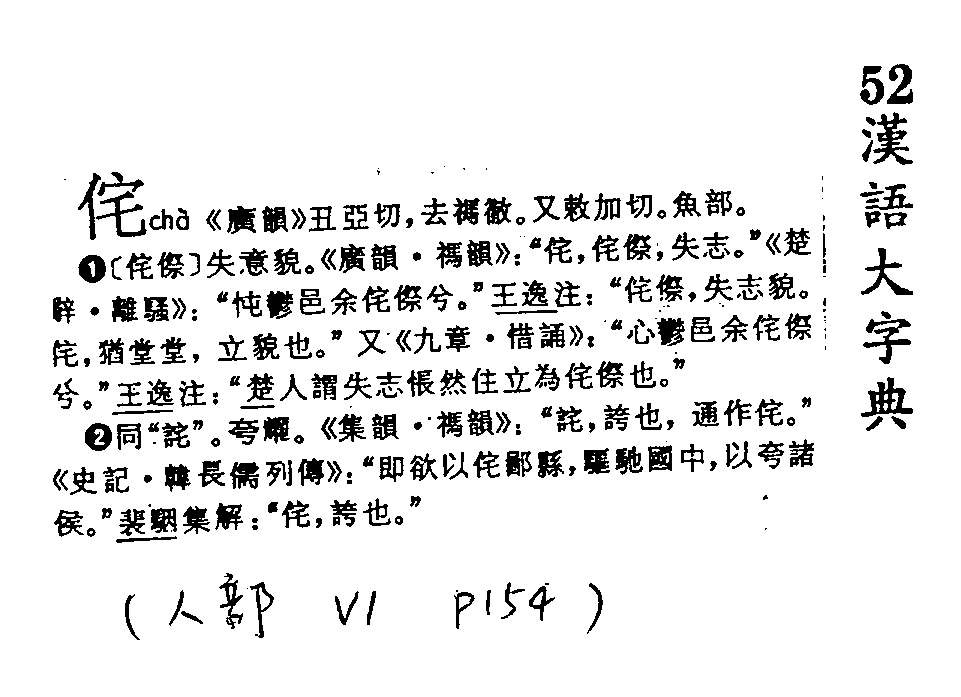 52漢語大字典
侘chà《廣韻》丑亞切,去禡徹。又敕加切。魚部。
❶〔侘傺〕失意貌。《廣韻·禡韻》:“侘,侘傺,失志。”《楚
辭·離騷》:“忳鬱邑余侘傺兮。”王逸注:“侘傺,失志貌。
侘,猶堂堂,立貌也。”又《九章·惜誦》:“心鬱邑余侘傺
兮。”王逸注:“楚人謂失志悵然住立為侘傺也。”
❷同“詫”。夸耀。《集韻·禡韻》:“詫,誇也,通作侘。”
《史記·韓長儒列傳》:“即欲以侘鄙縣,驅馳國中,以夸諸
侯。”裴駰集解:“侘,誇也。”
(人部 V1 P154)